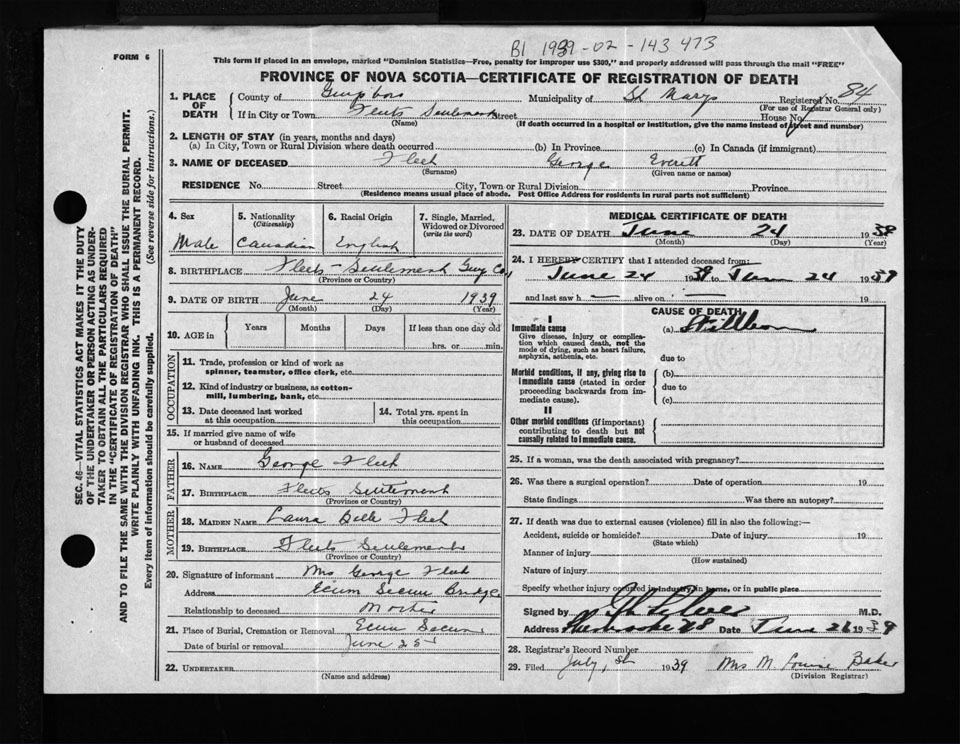 B1 1939-02-143 473
FORM 6
This form if placed in an envelope, marked "Dominion Statistics—Free, penalty for improper use $300," and properly addressed will pass through the mail "FREE"
PROVINCE OF NOVA SCOTIA—CERTIFICATE OF REGISTRATION OF DEATH
1. PLACE OF DEATH
County of Municipality of St Marys Registered No. 84
(For use of Registrar General only)
If in City or Town Street House No.
(Name) (If death occurred in a hospital or institution, give the name instead of street and number)
2. LENGTH OF STAY (in years, months and days)
(a) In City, Town or Rural Division where death occurred (b) In Province (c) In Canada (if immigrant)
3. NAME OF DECEASED Fleet George Everett
(Surname) (Given name or names)
RESIDENCE No. Street City, Town or Rural Division Province
(Residence means usual place of abode. Post Office Address for residents in rural parts not sufficient)
4. Sex
Male
5. Nationality
(Citizenship)
Canadian
6. Racial Origin
English
7. Single, Married, Widowed or Divorced
(write the word)
8. BIRTHPLACE Guy Co
(Province or Country)
9. DATE OF BIRTH June 24 1939
(Month) (Day) (Year)
10. AGE in Years Months Days If less than one day old
hrs. or min.
OCCUPATION
11. Trade, profession or kind of work as
spinner, teamster, office clerk, etc.
12. Kind of industry or business, as cotton-
mill, lumbering, bank, etc.
13. Date deceased last worked
at this occupation
14. Total yrs. spent in
this occupation
15. If married give name of wife
or husband of deceased
FATHER
16. NAME George Fleet
17. BIRTHPLACE
(Province or Country)
MOTHER
18. MAIDEN NAME Laura Belle Fleet
19. BIRTHPLACE
(Province or Country)
20. Signature of informant Mrs George Fleet
Address Ecum Secum Bridge
Relationship to deceased Mother
21. Place of Burial, Cremation or Removal Ecum Secum
Date of burial or removal June 25
22. UNDERTAKER
(Name and address)
MEDICAL CERTIFICATE OF DEATH
23. DATE OF DEATH June 24 19
(Month) (Day) (Year)
24. I HEREBY CERTIFY that I attended deceased from:
June 24 1939 to June 24 1939
and last saw h alive on
CAUSE OF DEATH
I
Immediate cause
Give disease, injury or complication which caused death, not the mode of dying, such as heart failure, asphyxia, asthenia, etc.
(a) Stillborn
due to
Morbid conditions, if any, giving rise to immediate cause (stated in order proceeding backwards from immediate cause).
(b)
due to
(c)
II
Other morbid conditions (if important) contributing to death but not causally related to immediate cause.
25. If a woman, was the death associated with pregnancy?
26. Was there a surgical operation? Date of operation 19
State findings Was there an autopsy?
27. If death was due to external causes (violence) fill in also the following:—
Accident, suicide or homicide? Date of injury 19
(State which)
Manner of injury
(How sustained)
Nature of injury
Specify whether injury occurred in industry, in home, or in public place
Signed by M.D.
Address Date June 26 1939
28. Registrar's Record Number
29. Filed July 1939 Mrs M. Louise Baker
(Division Registrar)
SEC. 46—VITAL STATISTICS ACT MAKES IT THE DUTY
OF THE UNDERTAKER OR PERSON ACTING AS UNDER-
TAKER TO OBTAIN ALL THE PARTICULARS REQUIRED
IN THE "CERTIFICATE OF REGISTRATION OF DEATH"
AND TO FILE THE SAME WITH THE DIVISION REGISTRAR WHO SHALL ISSUE THE BURIAL PERMIT.
WRITE PLAINLY WITH UNFADING INK. THIS IS A PERMANENT RECORD.
Every item of information should be carefully supplied. (See reverse side for instructions.)